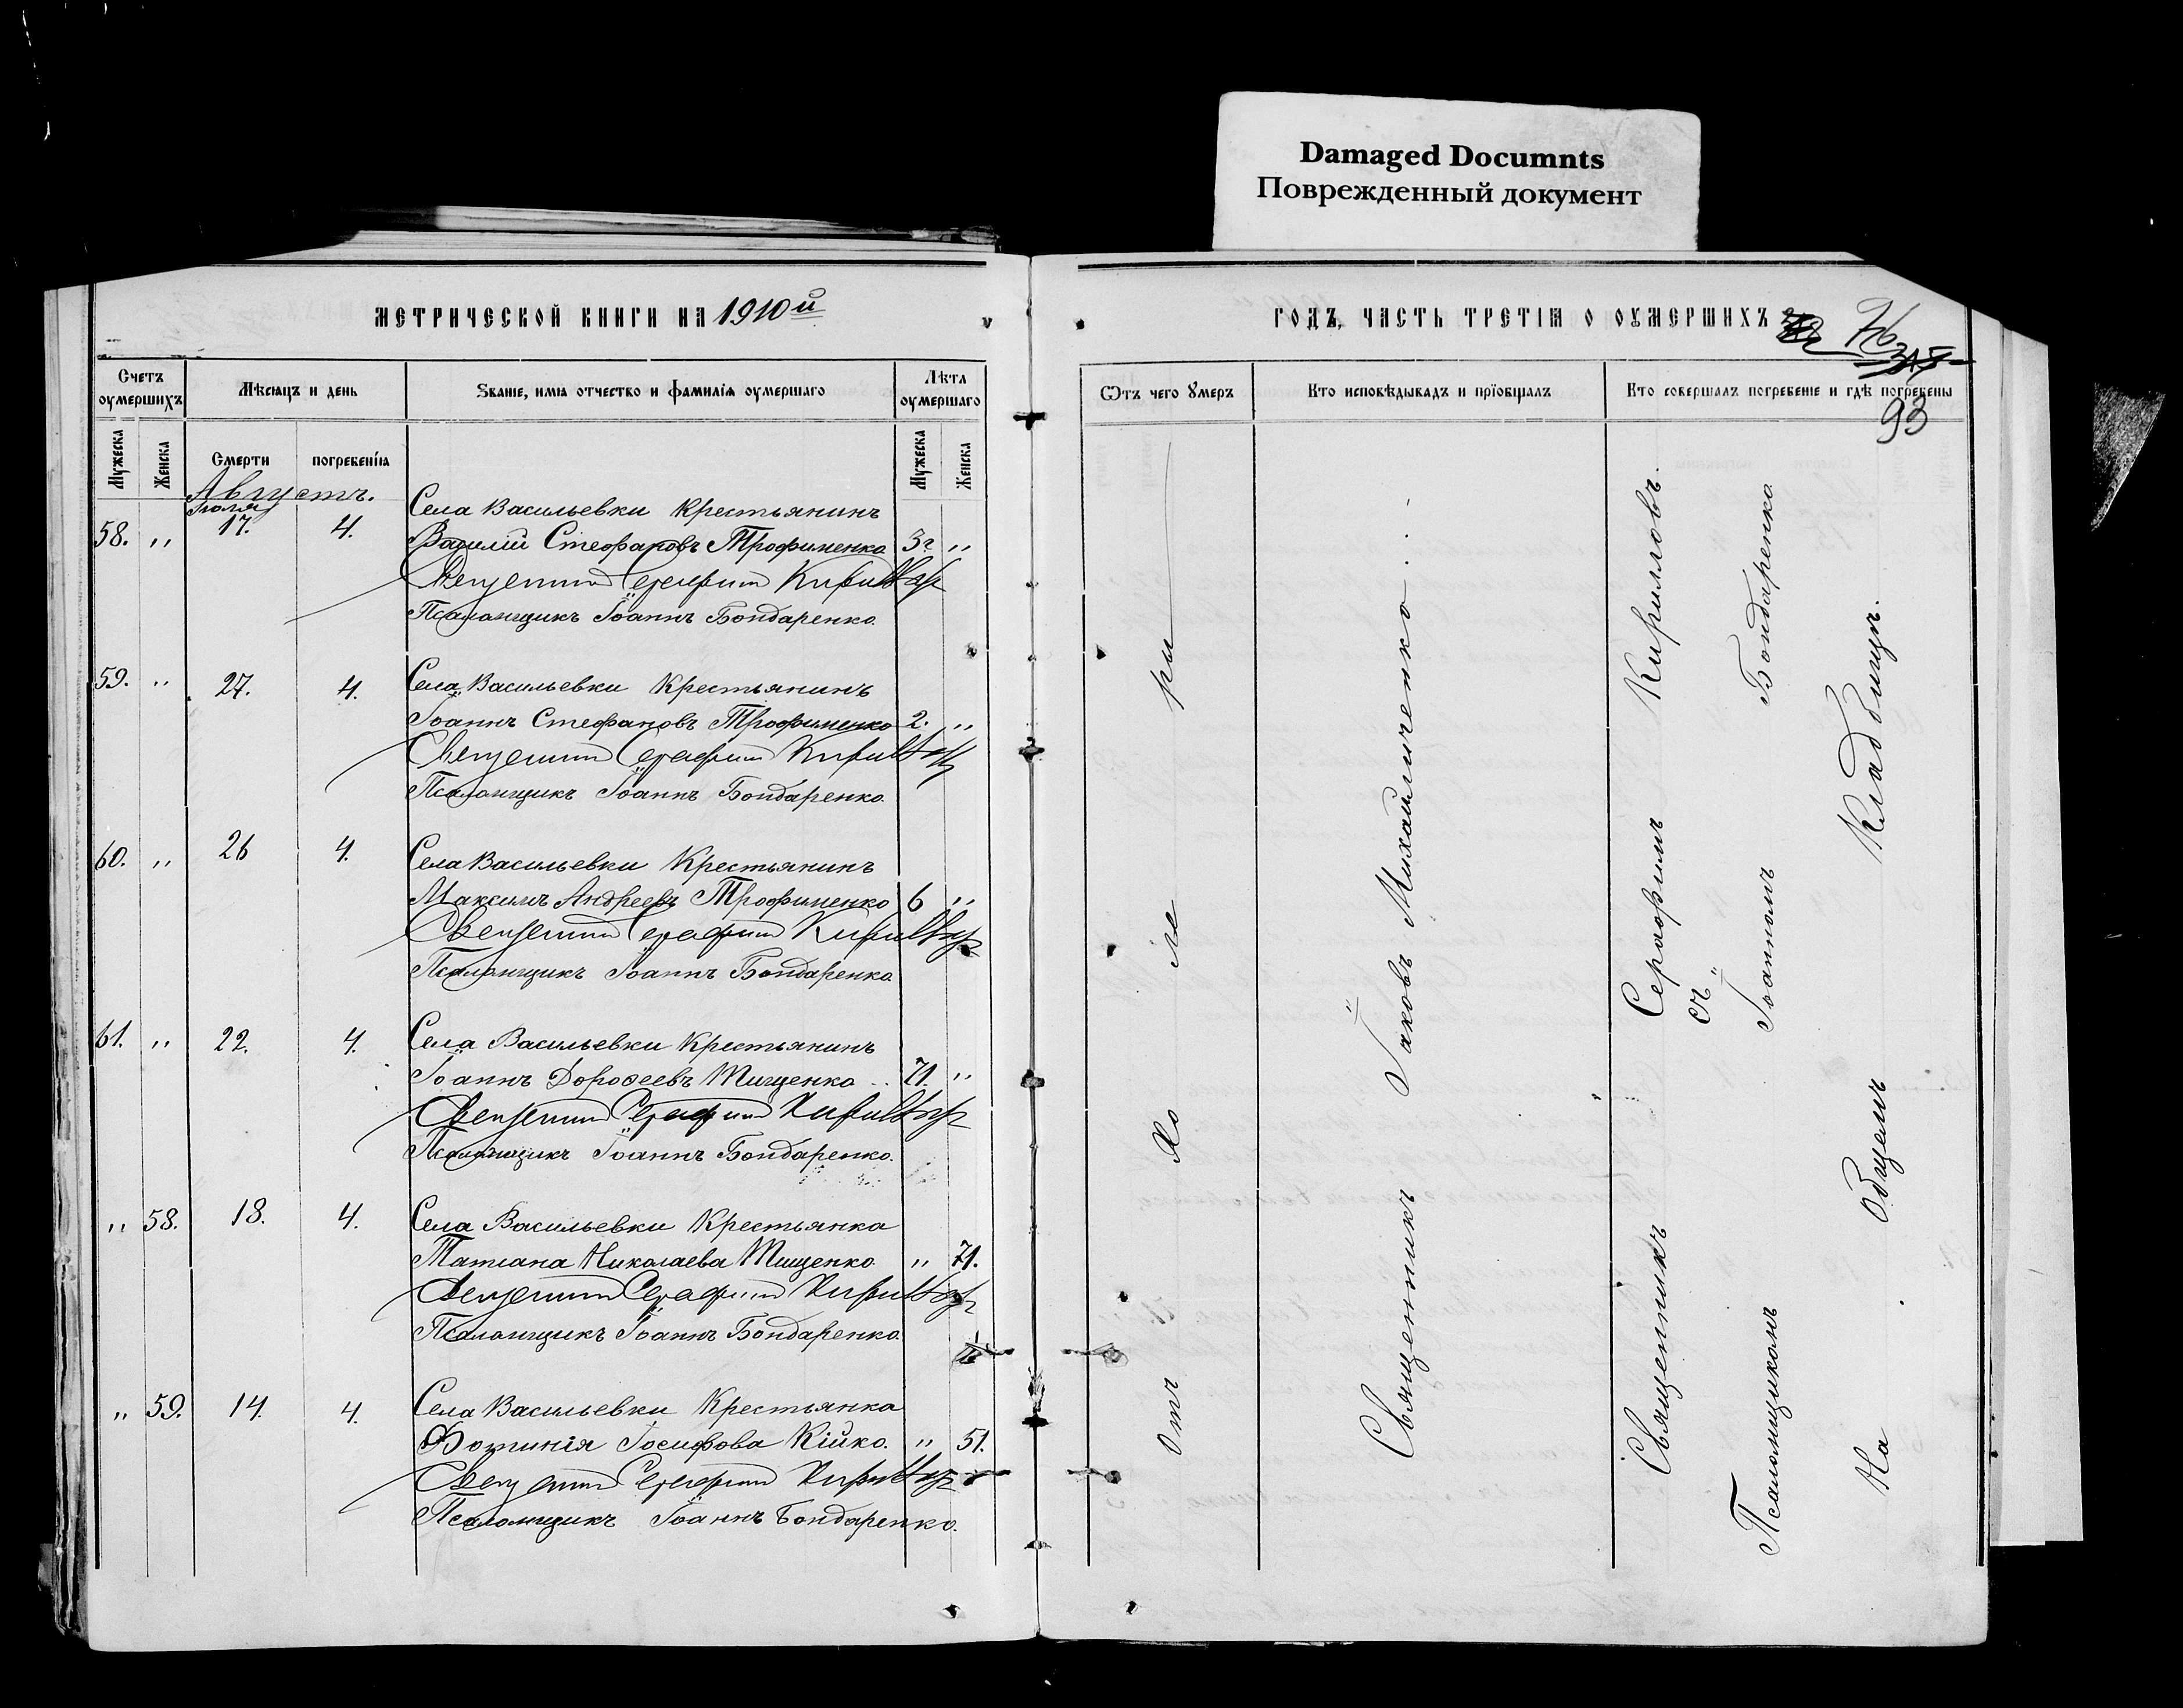 Damaged Documnts
Поврежденный документ
МЕТРИЧЕСКОЙ КНИГИ НА 1910й
ГОДЪ, ЧАСТЬ ТРЕТІЯ О ОУМЕРШИХЪ
93
Счетъ оумершихъ
Мѣсяцъ и день
Званіе, имя отчество и фамилія оумершаго
Лѣта оумершаго
Мужеска
Женска
Смерти
погребенія
Мужеска
Женска
Августъ.
Села Васильевки Крестьянинъ
Іюля
58. " 17. 4. Василій Стефановъ Трофименко 3г. "
Священникъ Серафимъ Кирилловъ
Псаломщикъ Іоаннъ Бондаренко.
59. " 27. 4. Села Васильевки Крестьянинъ
Іоаннъ Стефановъ Трофименко 2. "
Священникъ Серафимъ Кирилловъ
Псаломщикъ Іоаннъ Бондаренко.
60. " 26 4. Села Васильевки Крестьянинъ
Максимъ Андреевъ Трофименко 6 "
Священникъ Серафимъ Кирилловъ
Псаломщикъ Іоаннъ Бондаренко
61. " 22. 4. Села Васильевки Крестьянинъ
Іоаннъ Дорофеевъ Тищенко 71. "
Священникъ Серафимъ Кирилловъ
Псаломщикъ Іоаннъ Бондаренко.
" 58. 18. 4. Села Васильевки Крестьянка
Татіана Николаева Тищенко " 71.
Священникъ Серафимъ Кирилловъ
Псаломщикъ Іоаннъ Бондаренко.
" 59. 14. 4. Села Васильевки Крестьянка
Фотинія Іосифова Кійко. " 51.
Священникъ Серафимъ Кирилловъ
Псаломщикъ Іоаннъ Бондаренко.
Ѿтъ чего Умеръ
Кто исповѣдывалъ и пріобщалъ
Кто совершалъ погребеніе и гдѣ погребены
Отъ Хо ле ры
Священникъ Іаковъ Михайличенко
Священникъ Серафимъ Кирилловъ.
съ
Псаломщикомъ Іоанномъ Бондаренко
На Общемъ Кладбищѣ.